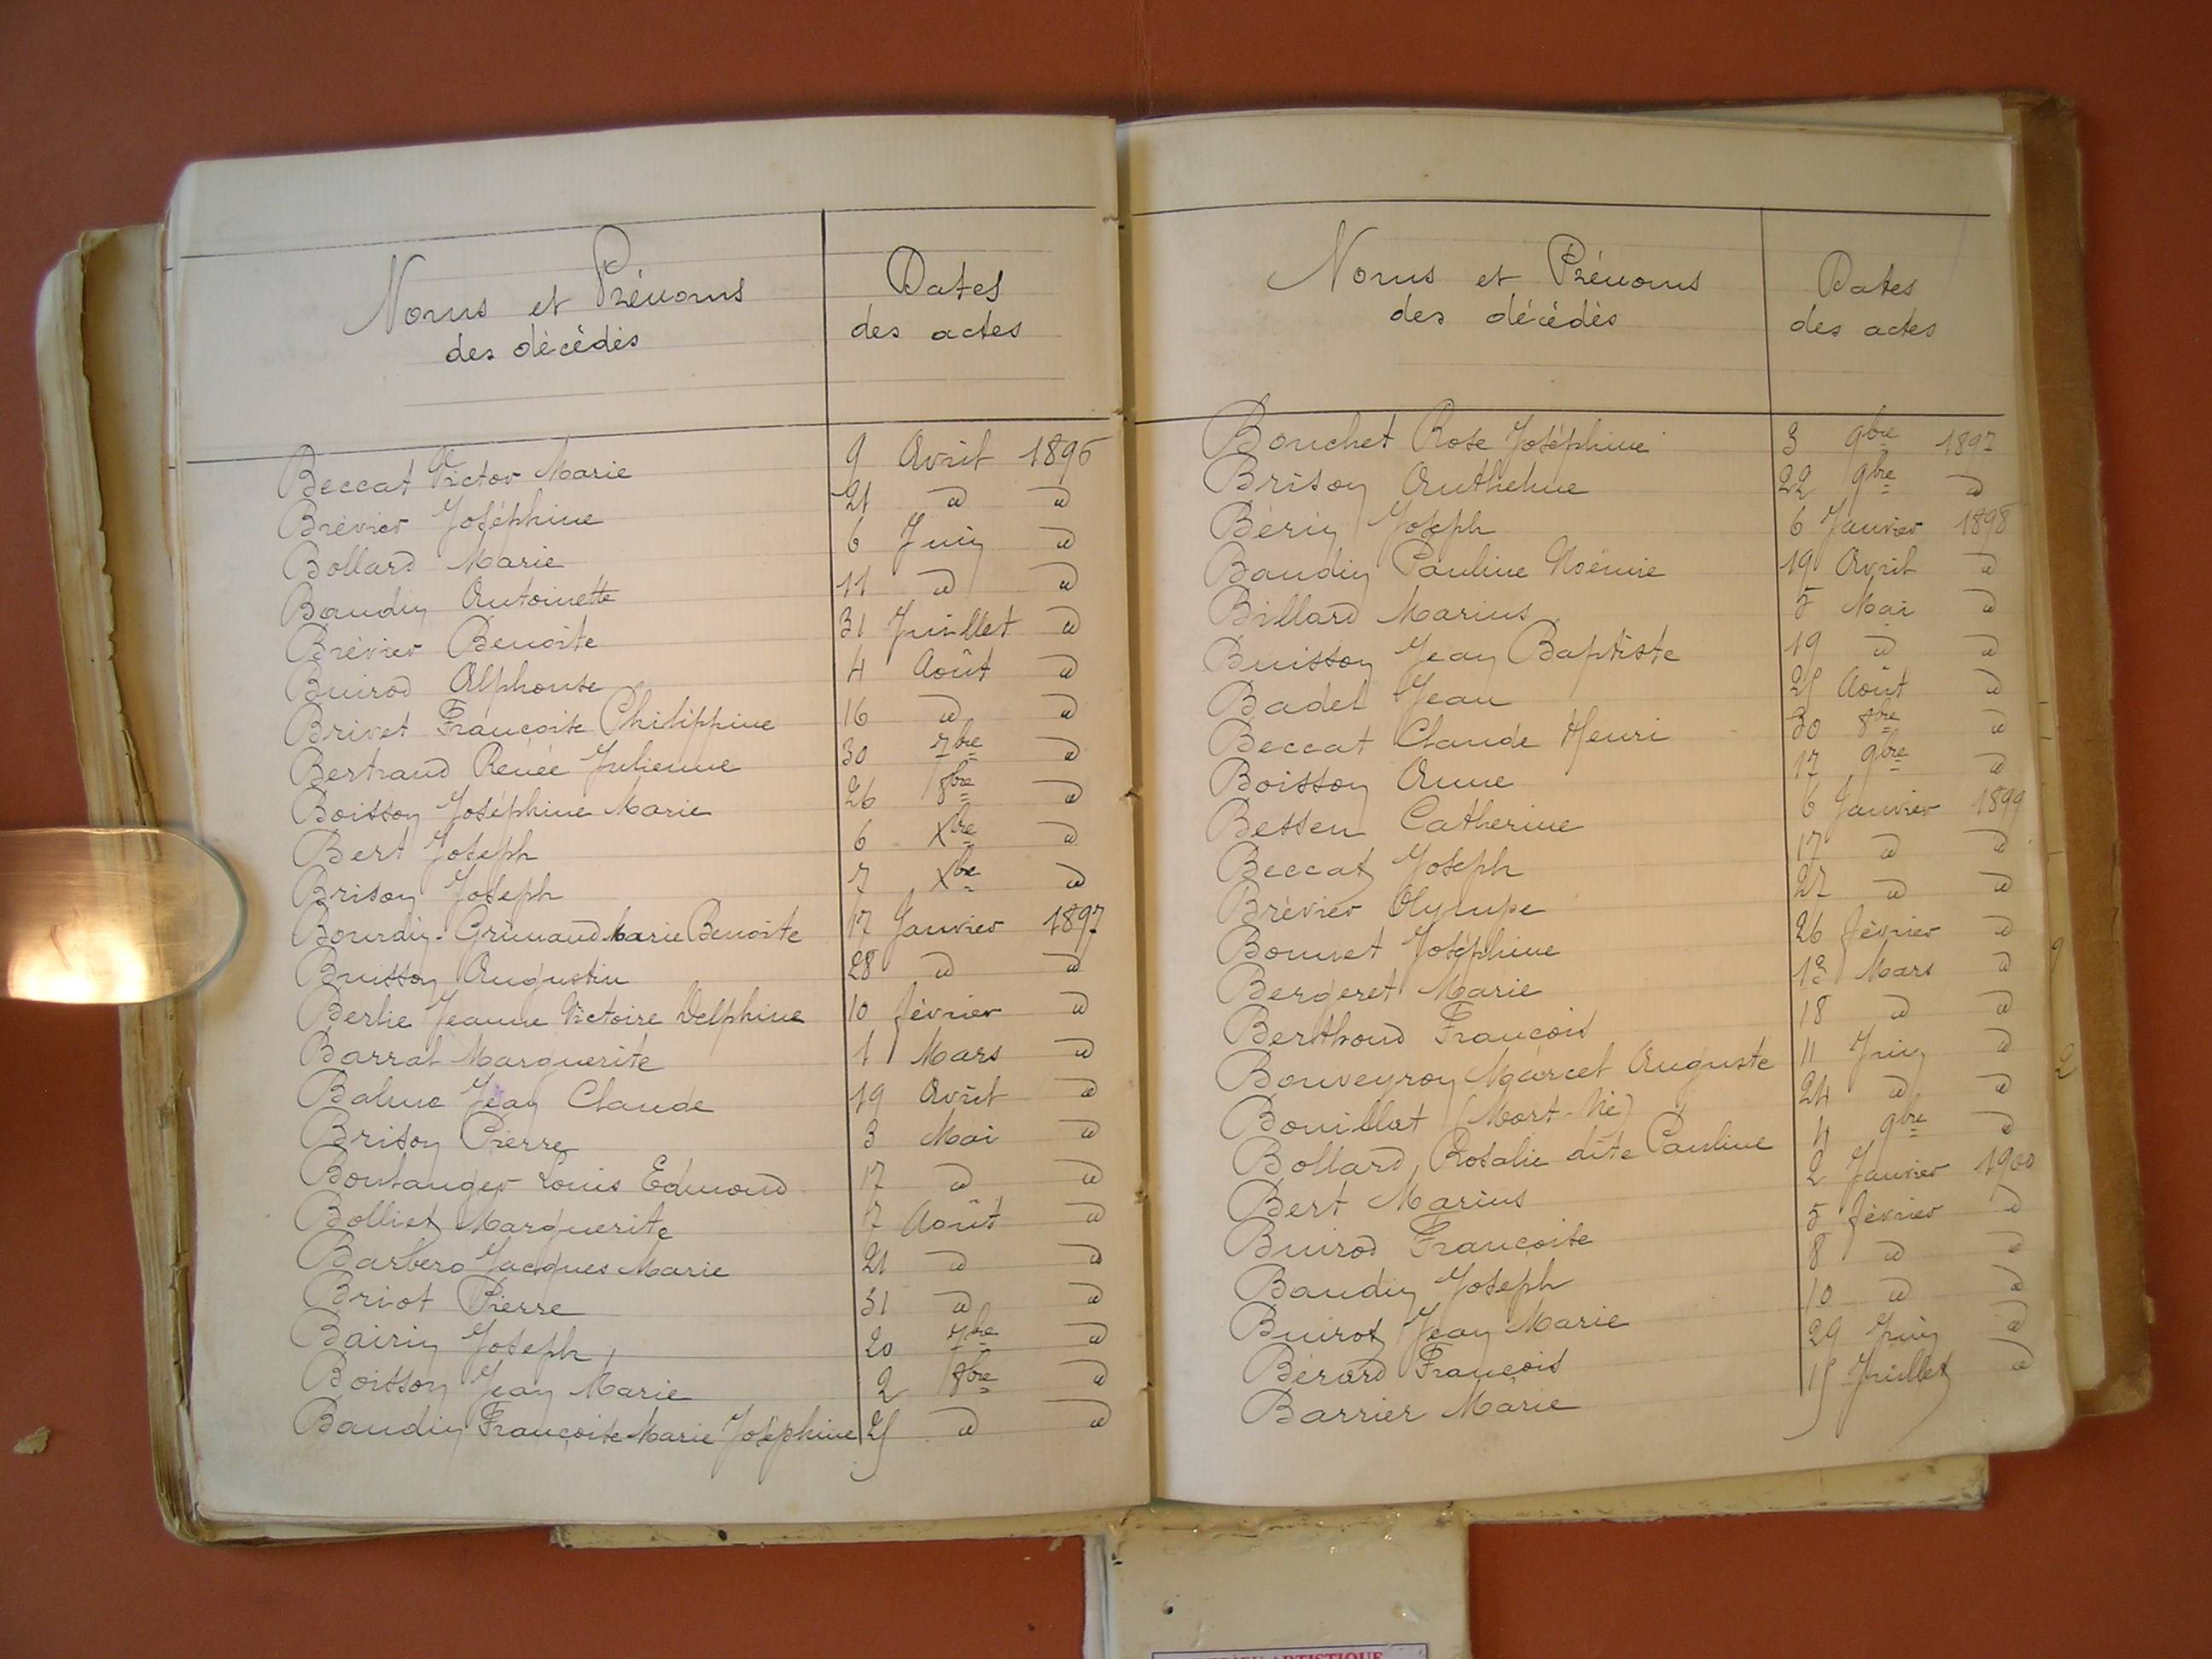 Noms et Prénoms
des décédés
Dates
des actes
Beccat Victor Marie 9 Avril 1896
Brévier Joséphine 21 d d
Bollard Marie 6 Juin d
Baudin Antoinette 11 d d
Brévier Benoite 31 Juillet d
Buirod Alphonse 4 Août d
Brivet Françoise Philippine 16 d d
Bertrand Renée Julienne 30 7bre d
Boisson Joséphine Marie 26 8bre d
Bert Joseph 6 Xbre d
Brison Joseph 7 Xbre d
Bourdin-Grimaud Marie Benoite 17 Janvier 1897
Buisson Augustin 28 d d
Berlie Jeanne Victoire Delphine 10 février d
Barral Marguerite 1 Mars d
Balme Jean Claude 19 Avril d
Brison Pierre 3 Mai d
Boulanger Louis Edmond 17 d d
Bolliet Marguerite 17 Août d
Barbero Jacques Marie 21 d d
Briot Pierre 31 d d
Bairin Joseph 20 7bre d
Boisson Jean Marie 2 8bre d
Baudin Françoise Marie Joséphine 25 d d
Noms et Prénoms
des décédés
Dates
des actes
Bouchet Rose Joséphine 3 9bre 1897
Brison Anthelme 22 9bre d
Bérin Joseph 6 Janvier 1898
Baudin Pauline Noëmie 19 Avril d
Billard Marius 5 Mai d
Buisson Jean Baptiste 19 d d
Badel Jean 25 Août d
Beccat Claude Henri 30 8bre d
Boisson Anne 17 9bre d
Bessen Catherine 6 Janvier 1899
Beccat Joseph 17 d d
Brévier Olympe 27 d d
Bonnet Joséphine 26 février d
Bergeret Marie 13 Mars d
Berthoud François 18 d d
Bouveyron Marcel Auguste 11 Juin d
Bouillat (Mort-Né) 24 d d
Bollard, Rosalie dite Pauline 4 9bre d
Bert Marius 2 Janvier 1900
Buirod Françoise 5 février d
Baudin Joseph 8 d d
Buirot Jean Marie 10 d d
Bérard François 29 Juin d
Barrier Marie 15 Juillet d